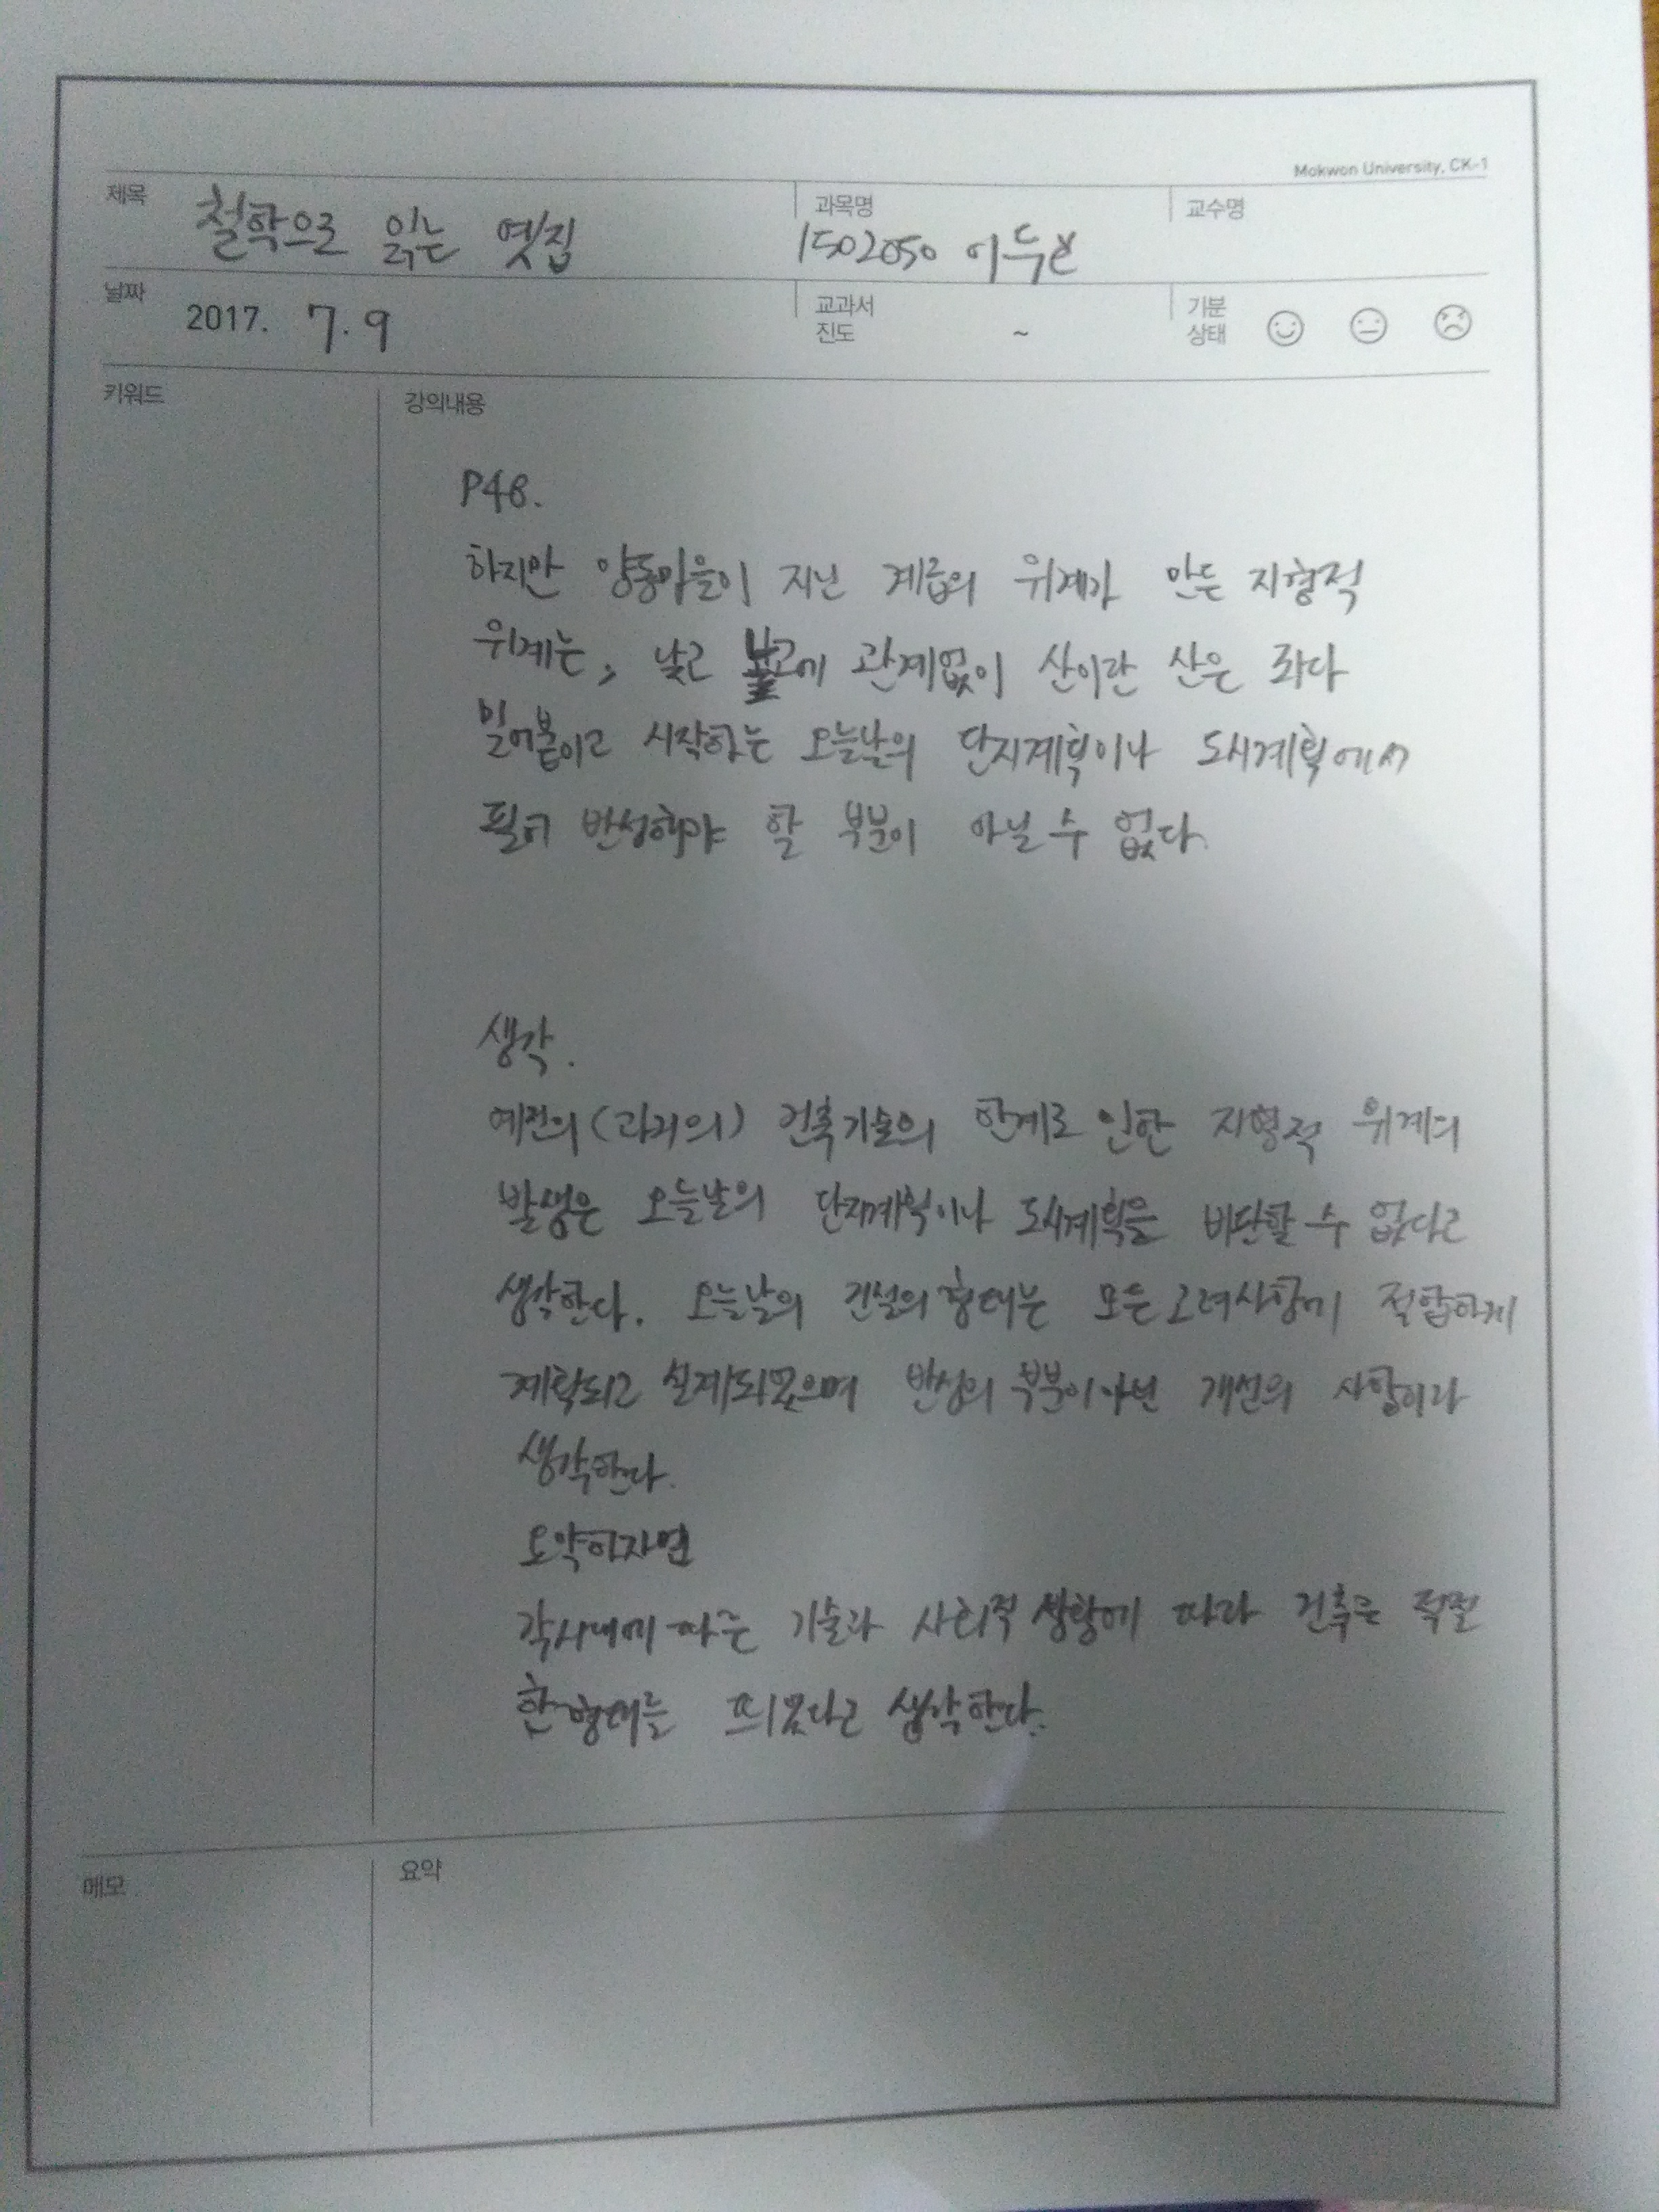 Mokwon University, CK-1
제목 철학으로 읽는 옛집 과목명 1502050 이두 교수명
날짜 2017. 7. 9 교과서 진도 ~ 기분 상태
키워드 강의내용
P48.
하지만 양동마을이 지닌 계급의 위계가 만든 지형적
위계는, 낮고 높고에 관계없이 산이란 산은 죄다
밀어붙이고 시작하는 오늘날의 단지계획이나 도시계획에서
필히 반성해야 할 부분이 아닐 수 없다.
생각.
예전의 (과거의) 건축기술의 한계로 인한 지형적 위계의
발생은 오늘날의 단지계획이나 도시계획을 비단할 수 없다고
생각한다. 오늘날의 건설의 형태는 모든 고려사항에 적합하게
계획되고 설계되었으며 반성의 부분이 아닌 개선의 사항이라
생각한다.
요약하자면
각시대에 따른 기술과 사회적 상황에 따라 건축은 적절
한 형태를 띄었다고 생각한다.
메모 요약